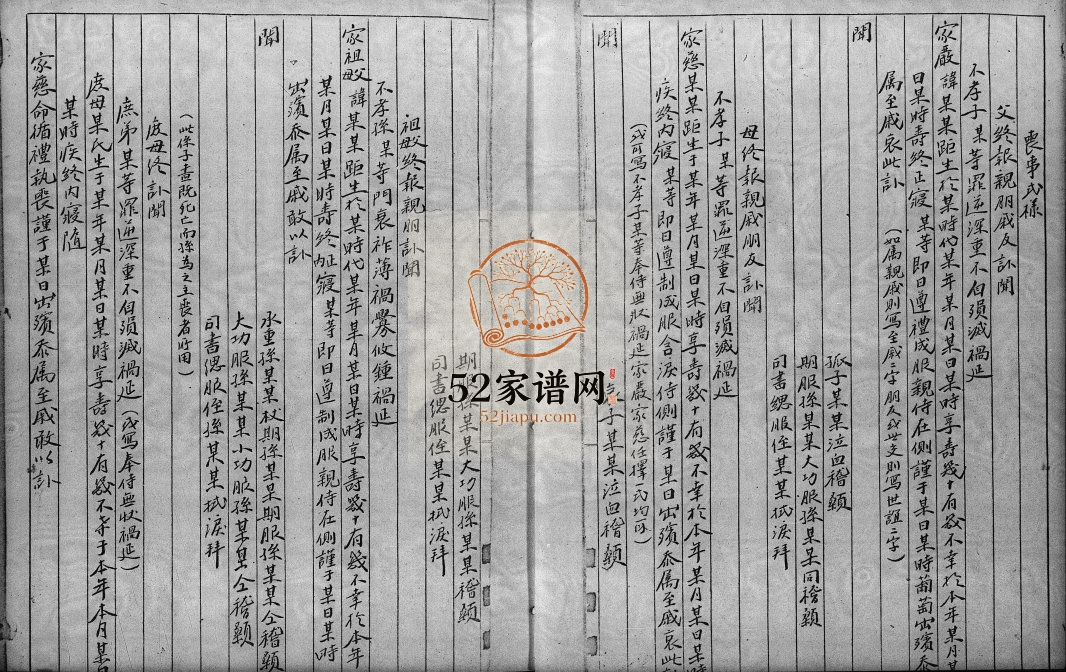 喪事式樣
父終報親朋戚友訃聞
不孝子某等罪逆深重不自殞滅禍延
家嚴諱某某距生於某時代某年某月某日某時享壽幾十有幾不幸於本年某月某
日某時壽終正寢某等即日遵禮成服親侍在側謹于某日某時葡萄出殯忝
属至戚哀此訃
(如属親戚則寫至戚二字朋友或世交則寫世誼二字)
聞
孤子某某泣血稽顙
期服孫某某大功服孫某某同稽顙
司書緦服侄某某拭淚拜
母終報親戚朋友訃聞
不孝子某等罪逆深重不自殞滅禍延
家慈某某距生于某年某月某日某時享壽幾十有幾不幸於本年某月某日某時
疾終内寢某等即日遵制成服含淚侍側謹于某日出殯忝属至戚哀此
(或可寫不孝子某等奉侍無狀禍延家嚴家慈任擇一式均可)
聞
子某某泣血稽顙
期服孫某某大功服孫某某稽顙
司書緦服侄某某拭淚拜
祖母終報親朋訃聞
不孝孫某等門衰祚薄禍釁攸鍾禍延
家祖母諱某某距生於某時代某年某月某日某時享壽幾十有幾不幸於本年
某月某日某時壽終内正寢某等即日遵制成服親侍在側謹于某日某時
出殯忝属至戚敢以訃
聞
承重孫某某杖期孫某某期服孫某某仝稽顙
大功服孫某某小功服孫某某仝稽顙
司書緦服侄孫某某拭淚拜
(此係子查既死亡而孫為之主喪者所用)
庶母終訃聞
庶弟某等罪逆深重不自殞滅禍延(或寫奉侍無狀禍延)
庶母某氏生于某年某月某日某時享壽幾十有幾不幸于本年本月某日
某時疾終内寢隨
家慈命循禮執喪謹于某日出殯忝属至戚敢以訃
52家谱网
52jiapu.com